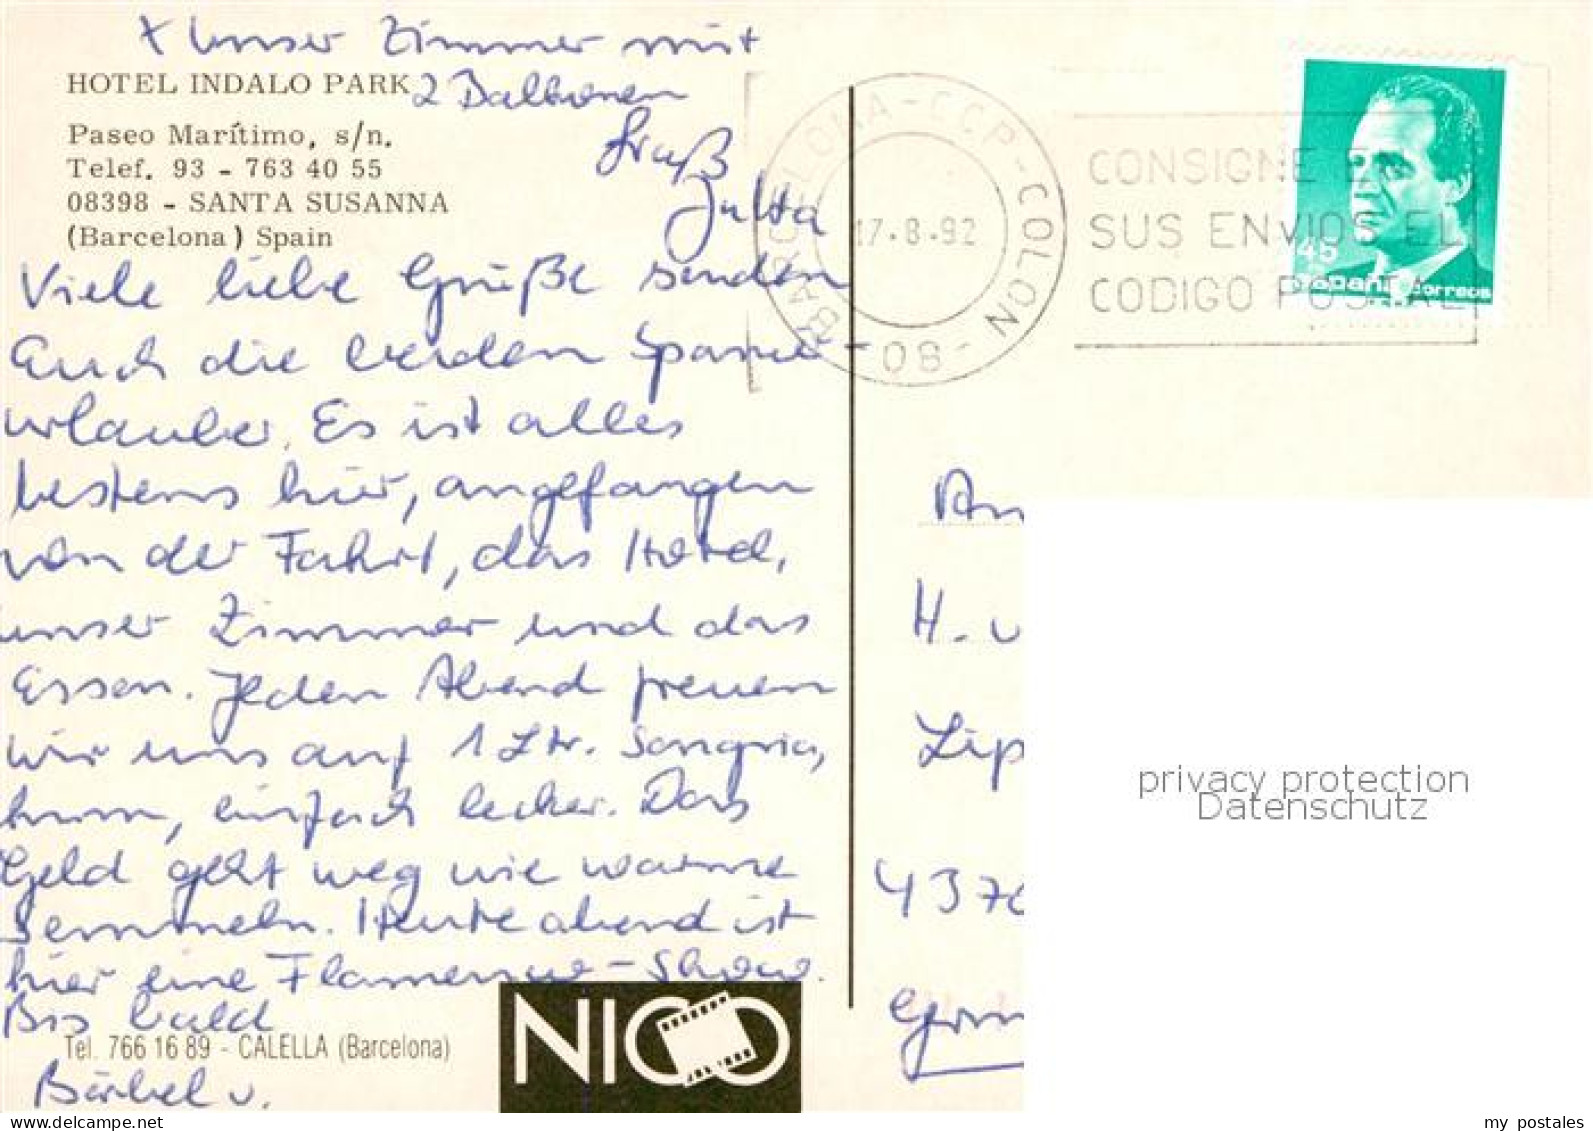 x Unser Zimmer mit
HOTEL INDALO PARK
2 Balkonen
Paseo Marítimo, s/n.
Gruß
Telef. 93 - 763 40 55
Jutta
08398 - SANTA SUSANNA
(Barcelona) Spain
Viele liebe Grüße senden
Euch die beiden Spanien-
urlauber. Es ist alles
bestens hier, angefangen
von der Fahrt, das Hotel,
unser Zimmer und das
Essen. Jeden Abend freuen
wir uns auf 1 Ltr. Sangria,
hmm, einfach lecker. Das
Geld geht weg wie warme
Semmeln. Heute abend ist
hier eine Flamenco-Show.
Bis bald
Tel. 766 16 89 - CALELLA (Barcelona)
Bärbel u.
NICO
BARCELONA-CCP-COLON
-08-
17-8-92
CONSIGNE EN
SUS ENVIOS EL
CODIGO POSTAL
45
España correos
An
H. u
Lip
4370
Grin
privacy protection
Datenschutz
my postales
www.delcampe.net